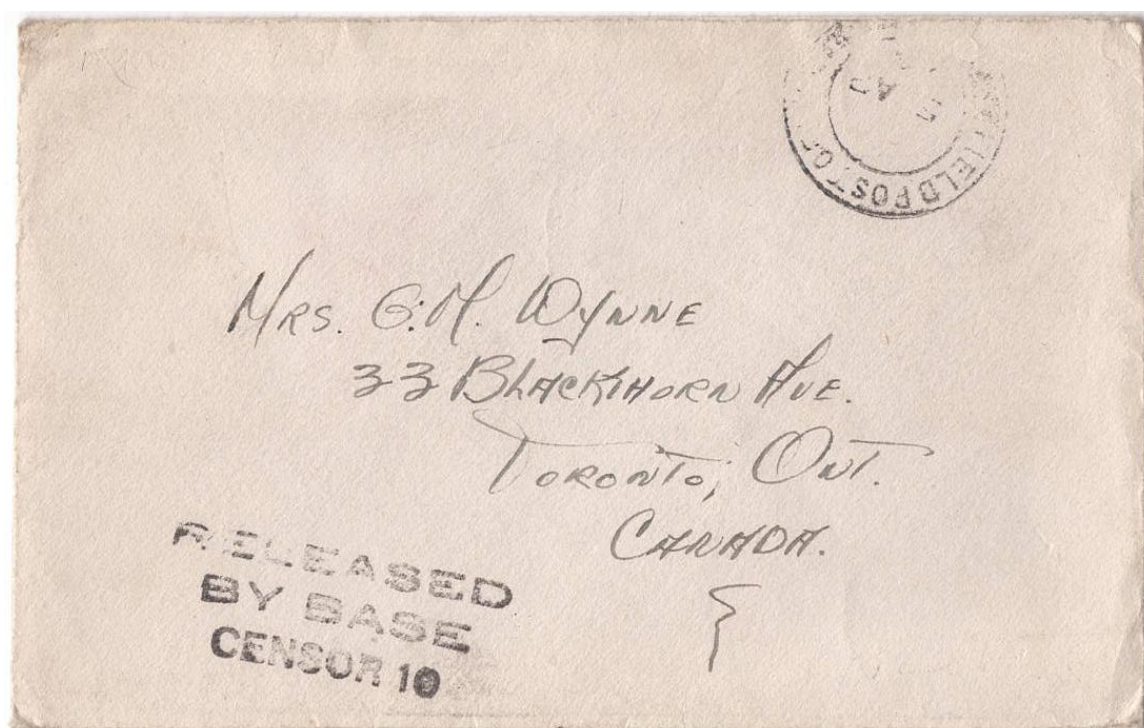 FIELD POST OF
AU
MRS. G.M. WYNNE
33 BLACKTHORN AVE.
TORONTO, ONT.
CANADA.
RELEASED
BY BASE
CENSOR 10